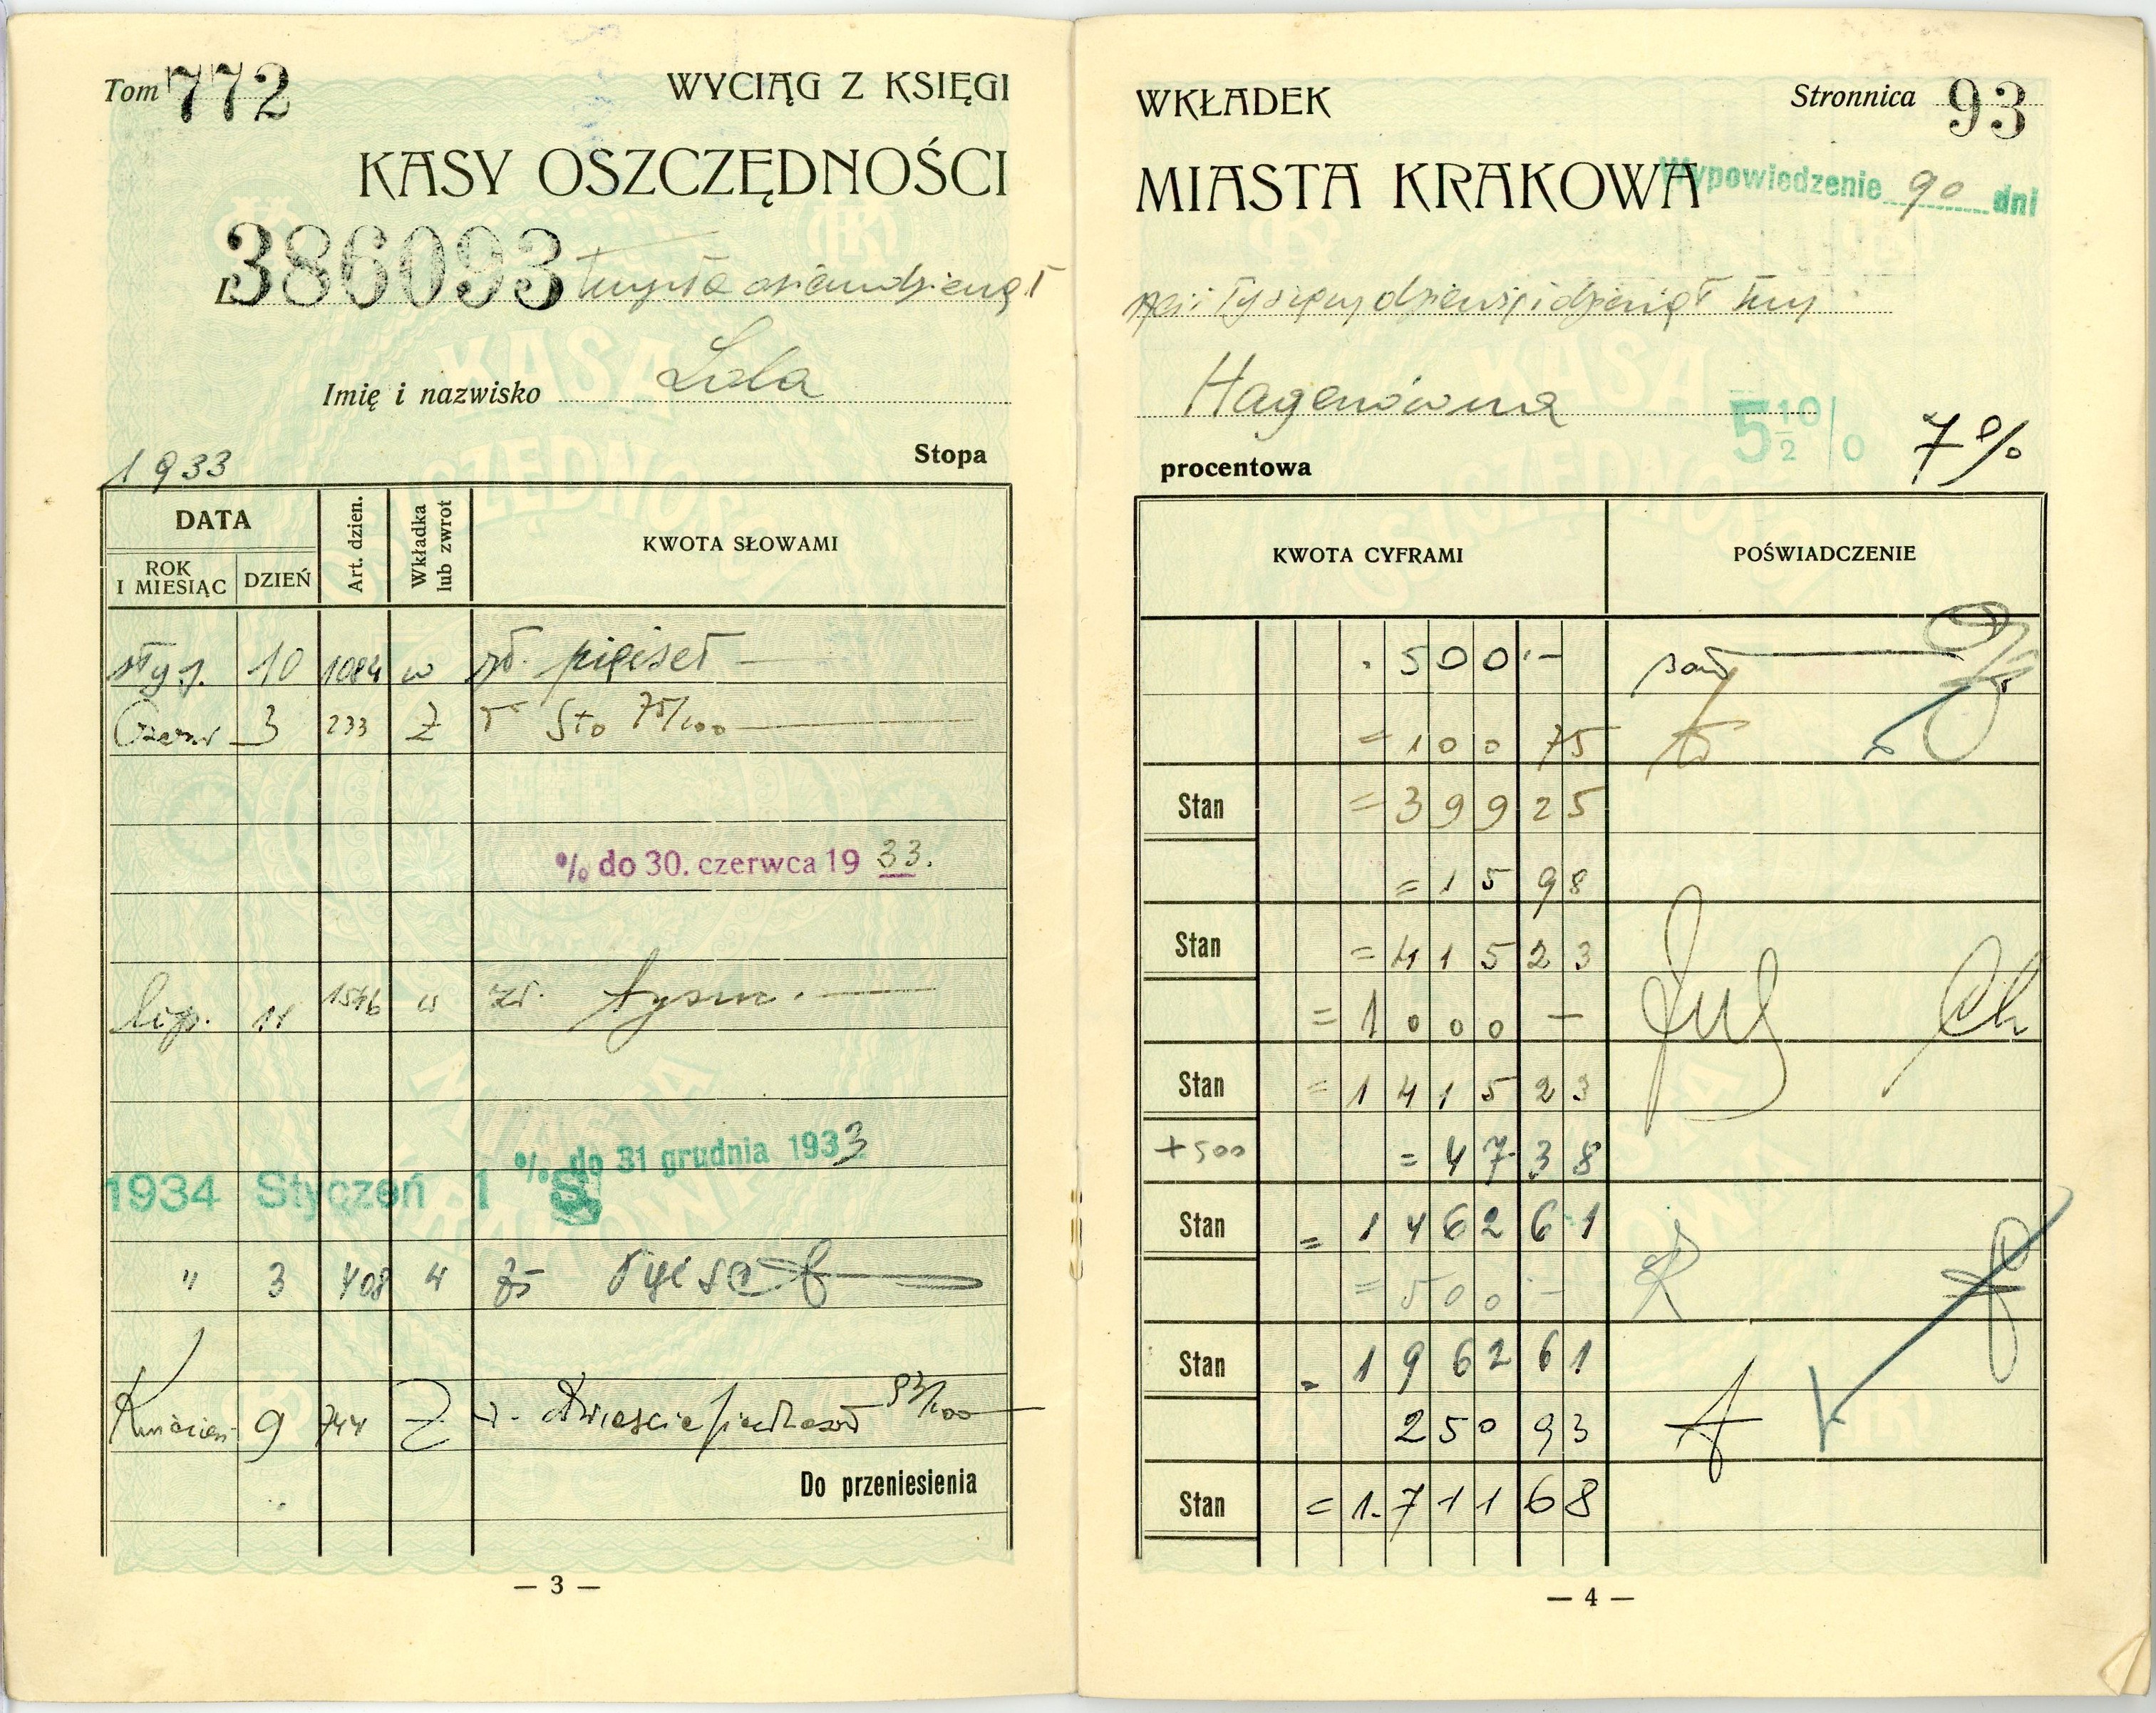 Tom 772 WYCIĄG Z KSIĘGI
KASY OSZCZĘDNOŚCI
L. 386093 trzysta osiemdziesiąt
Imię i nazwisko Lola
1933 Stopa
DATA
ROK I MIESIĄC DZIEŃ Art. dzien. Wkładka lub zwrot KWOTA SŁOWAMI
stycz. 10 1084 w zł. pięćset
Czerw 3 233 Z Sto 75/100
% do 30. czerwca 19 33.
lip. 11 1546 w zł. tysiąc
% do 31 grudnia 1933
1934 Styczeń 1
" 3 408 w pięćset
Kwiecień 9 744 Z Dwieście pięćdziesiąt 93/100
Do przeniesienia
— 3 —
WKŁADEK Stronnica 93
MIASTA KRAKOWA Wypowiedzenie 90 dni
sześć tysięcy dziewięćdziesiąt trzy
Hagenówna
procentowa 5 1/2 % 7%
KWOTA CYFRAMI POŚWIADCZENIE
500.—
= 100 75
Stan = 399 25
= 15 98
Stan = 415 23
= 1000 —
Stan = 1415 23
+500 = 47 38
Stan = 1462 61
= 500 —
Stan = 1962 61
250 93
Stan = 1.711 68
— 4 —